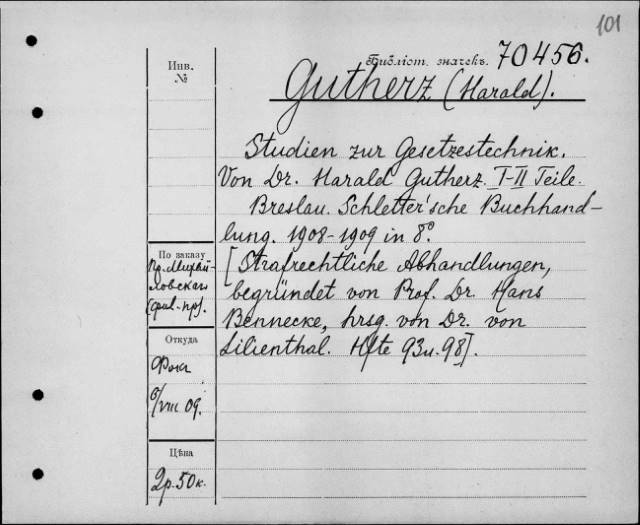 101
Инв. №
Библіот. значекъ. 70456.
Gutherz (Harald).
Studien zur Gesetzestechnik.
Von Dr. Harald Gutherz. I-II Teile.
Breslau. Schletter'sche Buchhand-
lung. 1908-1909 in 8º.
[Strafrechtliche Abhandlungen,
begründet von Prof. Dr. Hans
Bennecke, hrsg. von Dr. von
Lilienthal. Hfte 93 u. 98].
По заказу
Пр. Михай-
ловскаго
Откуда
Фока
6/VIII 09.
Цѣна
2 р. 50 к.